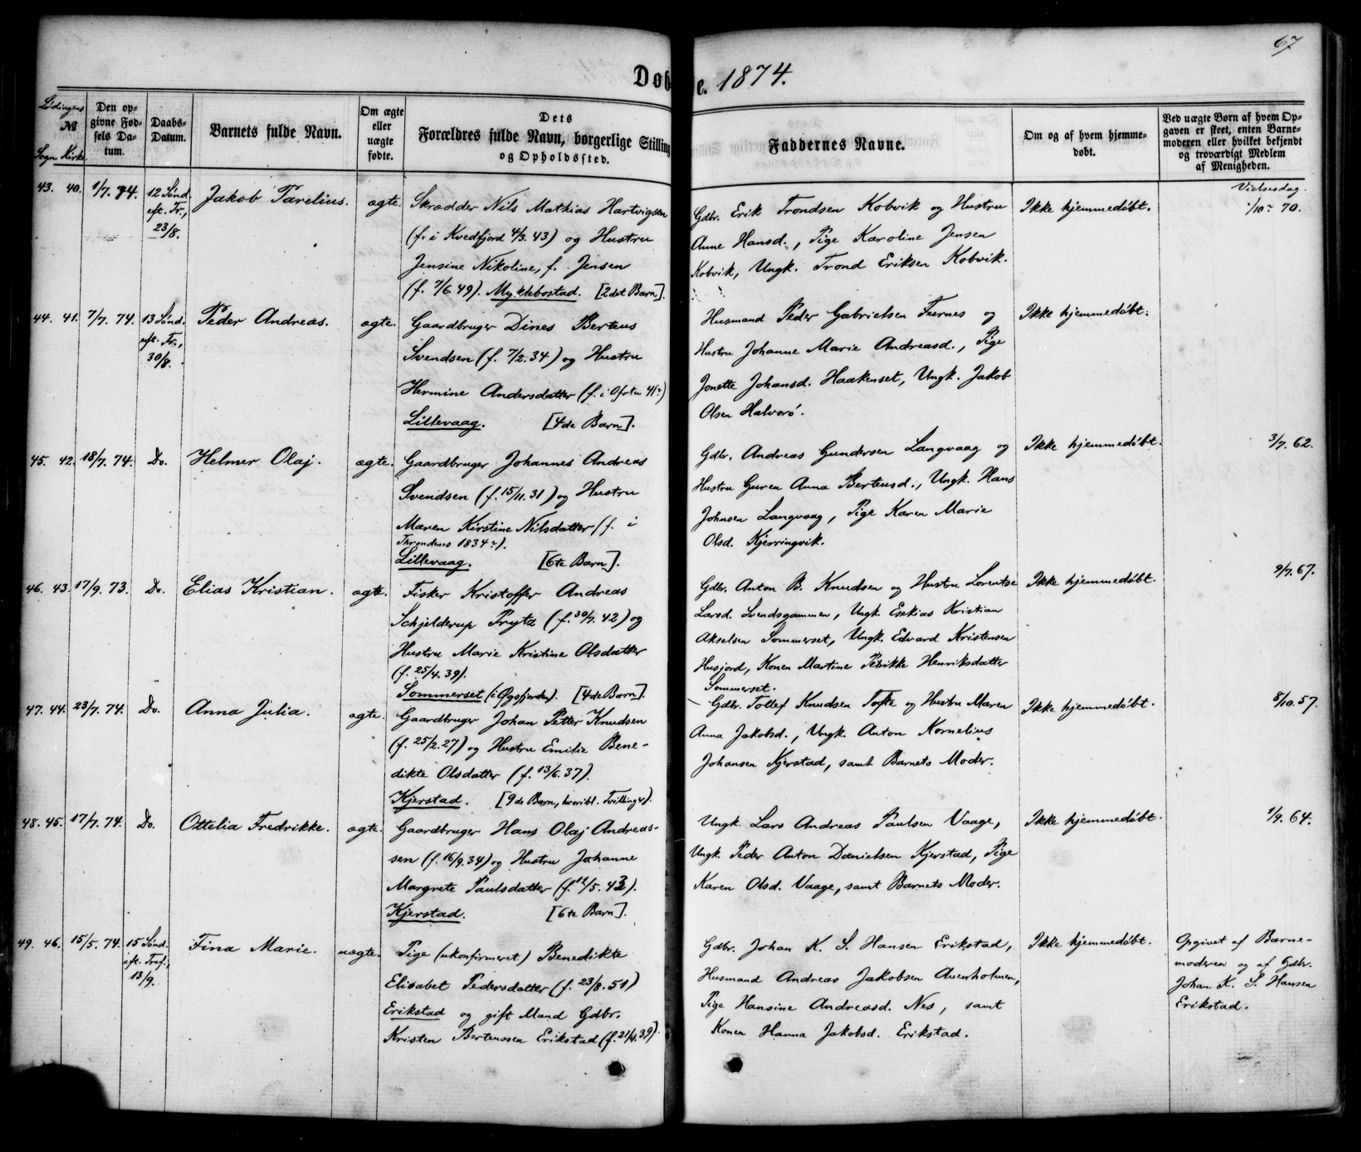 67
Døbte. 1874.
Lødingens
№
Sogn Kirke
Den opgivne Fødsels Datum.
Daabs-Datum.
Barnets fulde Navn.
Om ægte eller uægte fødte.
Dets Forældres fulde Navn, borgerlige Stilling og Opholdssted.
Faddernes Navne.
Om og af hvem hjemmedøbt.
Ved uægte Børn af hvem Opgaven er skeet, enten Barnemoderen eller hvilket bekjendt og troværdigt Medlem af Menigheden.
43. 40. 1/7. 74. 12 Sønd. eft. Tr., 23/8. Jakob Parelius. ægte.
Skrædder Nils Mathias Hartvigsen
(f. i Kvedfjord 4/3. 43) og Hustru
Jensine Nikoline, f. Jensen
(f. 7/6. 49). Myklebostad. [2det Barn].
Gdbr. Erik Trondsen Kobvik og Hustru
Anne Hansd., Pige Karoline Jensen
Kobvik, Ungk. Trond Eriksen Kobvik.
Ikke hjemmedøbt.
Vielsesdag.
70.
44. 41. 7/7. 74. 13 Sønd. eft. Tr., 30/8. Peder Andreas. ægte.
Gaardbruger Dines Berteus
Svendsen (f. 7/2. 34) og Hustru
Hermine Andersdatter (f. i Ofoten 41?)
Lillevaag. [4de Barn].
Husmand Peder Gabrielsen Furnes og
Hustru Johanne Marie Andreasd., Pige
Jonette Johansd. Haakenset, Ungk. Jakob
Olsen Halvorø.
Ikke hjemmedøbt.
45. 42. 18/7. 74. Do. Helmer Olaj. ægte.
Gaardbruger Johannes Andreas
Svendsen (f. 15/11. 31) og Hustru
Maren Kirstine Nilsdatter (f. i
Throndenes 1834?).
Lillevaag. [6te Barn].
Gdbr. Andreas Gundersen Langvaag og
Hustru Guren Anna Berteusd., Ungk. Hans
Johnsen Langvaag, Pige Karen Marie
Olsd. Kjerringvik.
Ikke hjemmedøbt.
3/7. 62.
46. 43. 17/9. 73. Do. Elias Kristian. ægte.
Fisker Kristoffer Andreas
Schjelderup Prytz (f. 30/7. 42) og
Hustru Marie Kristine Olsdatter
(f. 25/4. 39).
Sommerset (i Øgsfjorden). [4de Barn].
Gdbr. Anton B. Knudsen og Hustru Lorentse
Larsd. Svendsgammen, Ungk. Esekias Kristian
Akselsen Sommerset, Ungk. Edvard Kristensen
Husjord, Konen Martine Petrikke Henriksdatter
Sommerset.
Ikke hjemmedøbt.
9/7. 67.
47. 44. 23/7. 74. Do. Anna Julia. ægte.
Gaardbruger Johan Petter Knudsen
(f. 25/2. 27) og Hustru Emilie Bene-
dikte Olsdatter (f. 13/6. 37).
Kjerstad. [9de Barn, hvoribl. Tvillinger].
Gdbr. Tollef Knudsen Tofte og Hustru Maren
Anna Jakobsd., Ungk. Anton Kornelius
Johansen Kjerstad, samt Barnets Moder.
Ikke hjemmedøbt.
8/10. 57.
48. 45. 17/7. 74. Do. Ottelia Fredrikke. ægte.
Gaardbruger Hans Olaj Andreas-
sen (f. 16/9. 34) og Hustru Johanne
Margrete Paulsdatter (f. 12/5. 43).
Kjerstad. [6te Barn].
Ungk. Lars Andreas Paulsen Vaage,
Ungk. Peder Anton Danielsen Kjerstad, Pige
Karen Olsd. Vaage, samt Barnets Moder.
Ikke hjemmedøbt.
1/9. 64.
49. 46. 15/5. 74. 15 Sønd. eft. Tref., 13/9. Fina Marie. uægte.
Pige (ukonfirmeret) Benedikte
Elisabet Pedersdatter (f. 23/8. 51)
Erikstad og gift Mand Gdbr.
Kristen Berteussen Erikstad (f. 21/4. 39).
Gdbr. Johan K. S. Hansen Erikstad,
Husmand Andreas Jakobsen Auerholmen,
Pige Hansine Andreasd. Nes, samt
Konen Hanna Jakobsd. Erikstad.
Ikke hjemmedøbt.
Opgivet af Barne-
moderen og af Gdbr.
Johan K. S. Hansen
Erikstad.